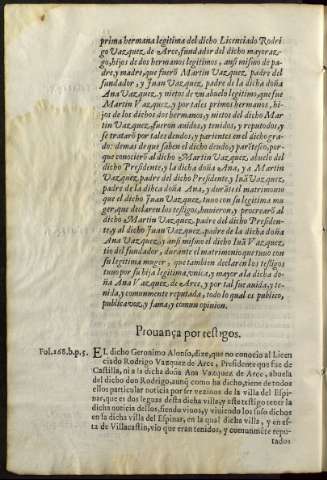 prima hermana legitima del dicho Licenciado Rodri
go Vazquez de Arce, fundador del dicho mayoraz-
go, hijos de dos hermanos legitimos, ansi mismo de pa-
dre, y madre, que fuerō Martin Vazquez, padre del
fundador, y Juan Vazquez, padre de la dicha doña
Ana Vazquez, y nietos de vn abuelo legitimo, que fue
Martin Vazquez, y por tales primos hermanos, hi-
jos de los dichos dos hermanos, y nietos del dicho Mar
tin Vazquez, fueron auidos, y tenidos, y reputados, y
se trataro por tales deudos, y parientes en el dicho gra-
do: demas de que saben el dicho deudo, y parētesco, por-
que conocierō al dicho Martin Vazquez, abuelo del
dicho Presidente, y la dicha doña Ana, y a Martin
Vazquez, padre del dicho Presidente, y Iuā Vazquez,
padre de la dihca doña Ana, y durāte el matrimonio
que el dicho Juan Vazquez, tuuo con su legitima mu
ger, que declaren los testigos, huuieron, y procrearō al
dicho Martin Vazquez, padre del dicho Presiden-
te, y al dicho Juan Vazquez, padre de la dicha doña
Ana Vazquez, y ansi mismo el dicho Iuā Vazquez,
tio del fundador, durante el matrimonio que tuuo con
su legitima muger, que tambien declaren los testigos
tuuo por su hija legitima, vnica, y mayor a la dicha do
ña Ana Vazquez, de Arce, y por tal fue auida, y te-
nida, y comunmente reputada, todo lo qual es publico,
publica voz, y fama, y comun opinion.
Prouança por testigos.
Fol.268.b.p.5. EL dicho Geronimo Alonso, dize, que no conocio al Licen
ciado Rodrigo Vazquez de Arce, Presidente que fue de
Castilla, ni a la dicha doña Ana Vazquez de Arce, abuela
del dicho don Rodrigo, aunq̃ como ha dicho, tiene de todos
ellos particular noticia por ser vezinos de la villa del Espi-
nar, que es dos leguas desta dicha villa, y este testigo tener la
dicha noticia dellos, siendo viuos, y viuiendo los suso dichos
en la dicha villa del Espinar, en la qual dicha villa, y en es-
ta de Villacastin, vio que eran tenidos, y comunmēte repu-
tados